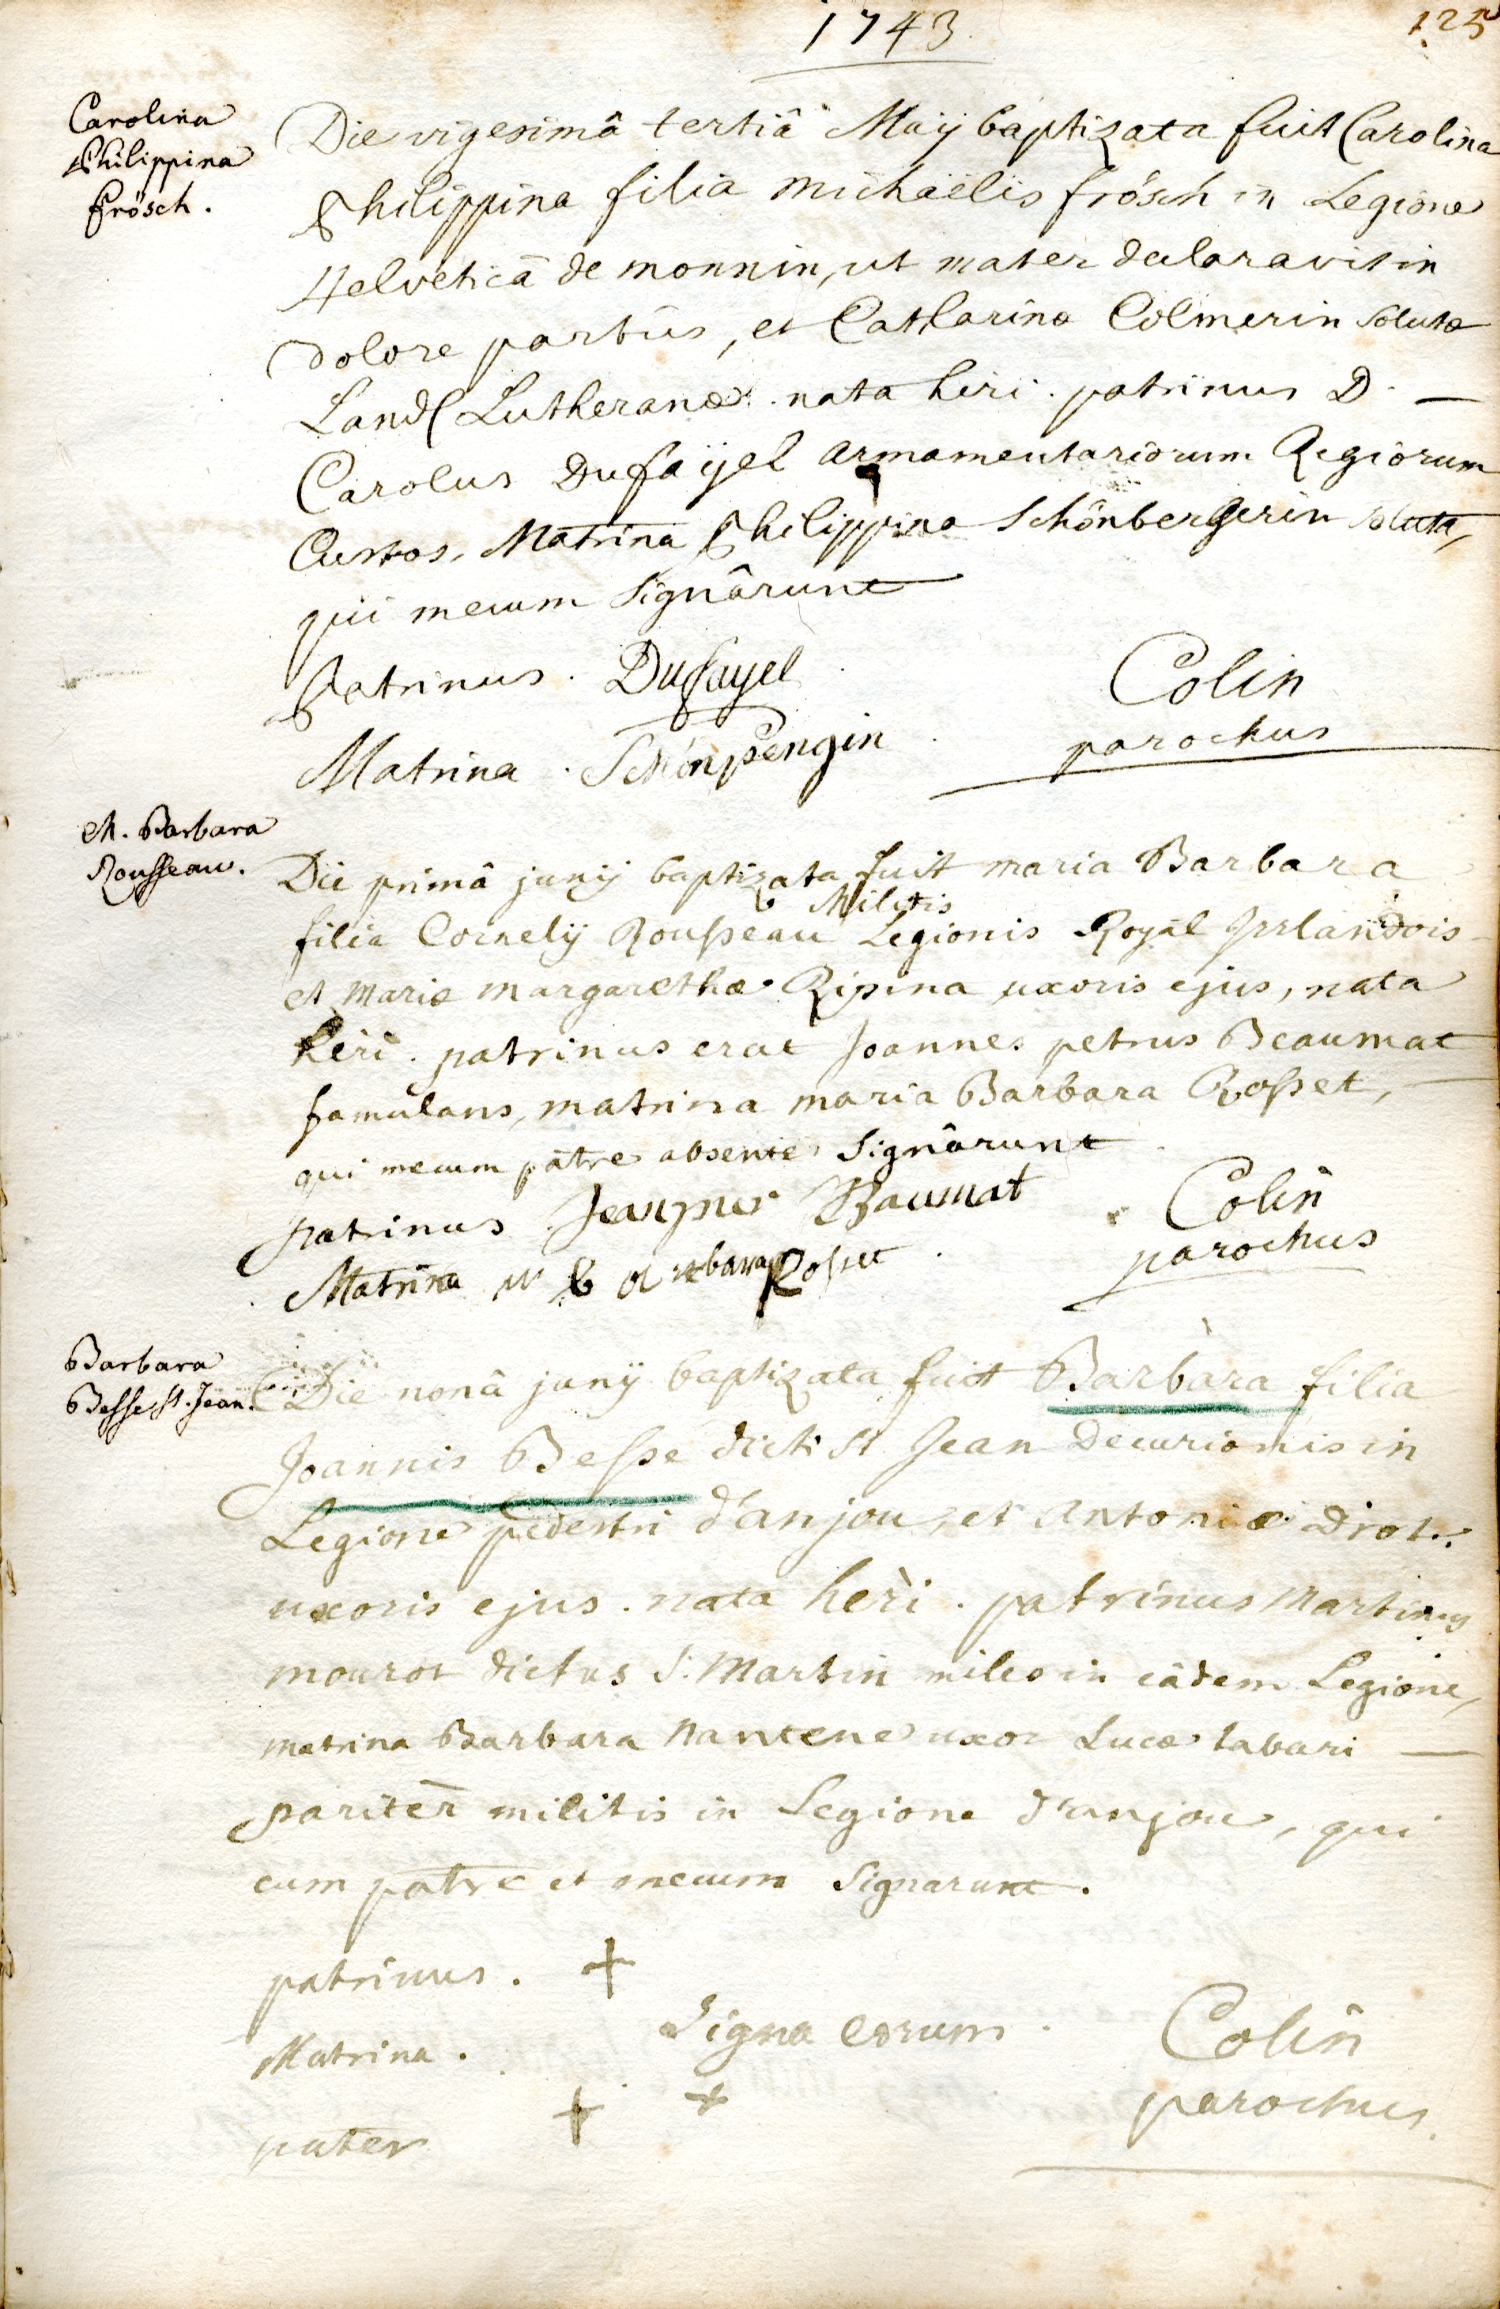 1743.
125
Carolina
Philippina
Frösch.
Die vigesimâ tertiâ Maÿ baptizata fuit Carolina
Philippina filia Michaëlis frösch in Legione
Helveticâ de monnin, ut mater declaravit in
dolore partûs, et Catharinæ Colmerin Solutæ
Land( Lutheranæ. nata heri. patrinus D. —
Carolus Dufaÿel armamentariorum Regiorum
Custos, Matrina Philippina Schönbergerin soluta,
qui mecum Signârunt
Patrinus. Dufayel
Colin
parochus
Matrina. Schönpengin
M. Barbara
Rousseau.
Die primâ junÿ baptizata fuit maria Barbara
Militis
filia Cornelÿ Rousseau Legionis Royal Irrlandois
et mariæ margarethæ Ripina uxoris ejus, nata
heri. patrinus erat Joannes petrus Beaumat
famulans, matrina maria Barbara Rosset,
qui mecum patre absente Signârunt
patrinus Baumat
Colin
parochus
Matrina Rosset
Barbara
Besse St. Jean.
Die nonâ junÿ baptizata fuit Barbara filia
Joannis Besse dicti St Jean Decurionis in
Legione pedestri d'anjou, et antoniæ Diot.
uxoris ejus. nata heri. patrinus Martinus
mourot dictus S. Martin miles in eâdem Legione,
matrina Barbara Nantene uxor Lucæ tabari —
pariter militis in Legione d'anjou, qui
cum patre et mecum Signarunt.
patrinus. +
Signa eorum.
Matrina.
Colin
parochus.
+ +
pater